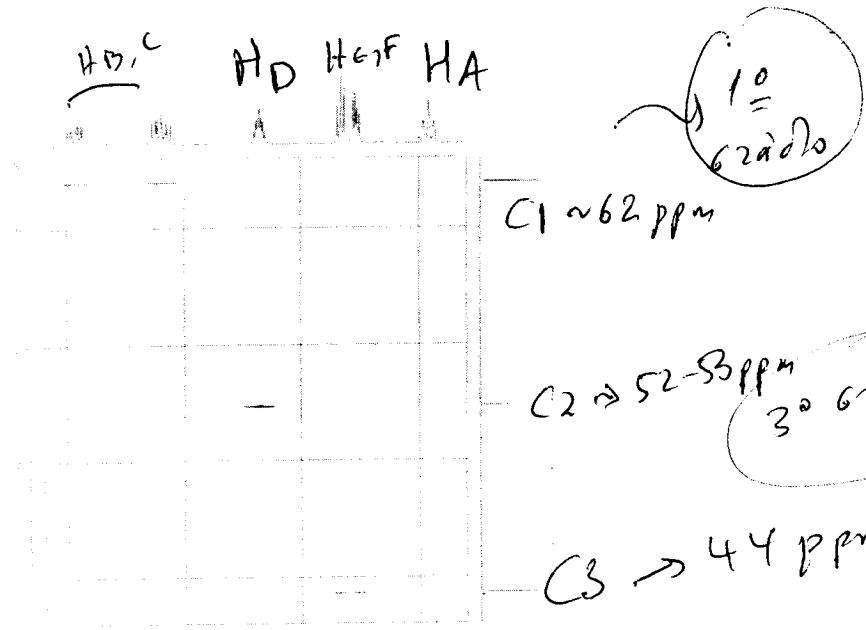 HB,C
HD
HE,F
HA
1º
C1 ~62 ppm
C2 → 52-53ppm
3º
C3 → 44 ppm